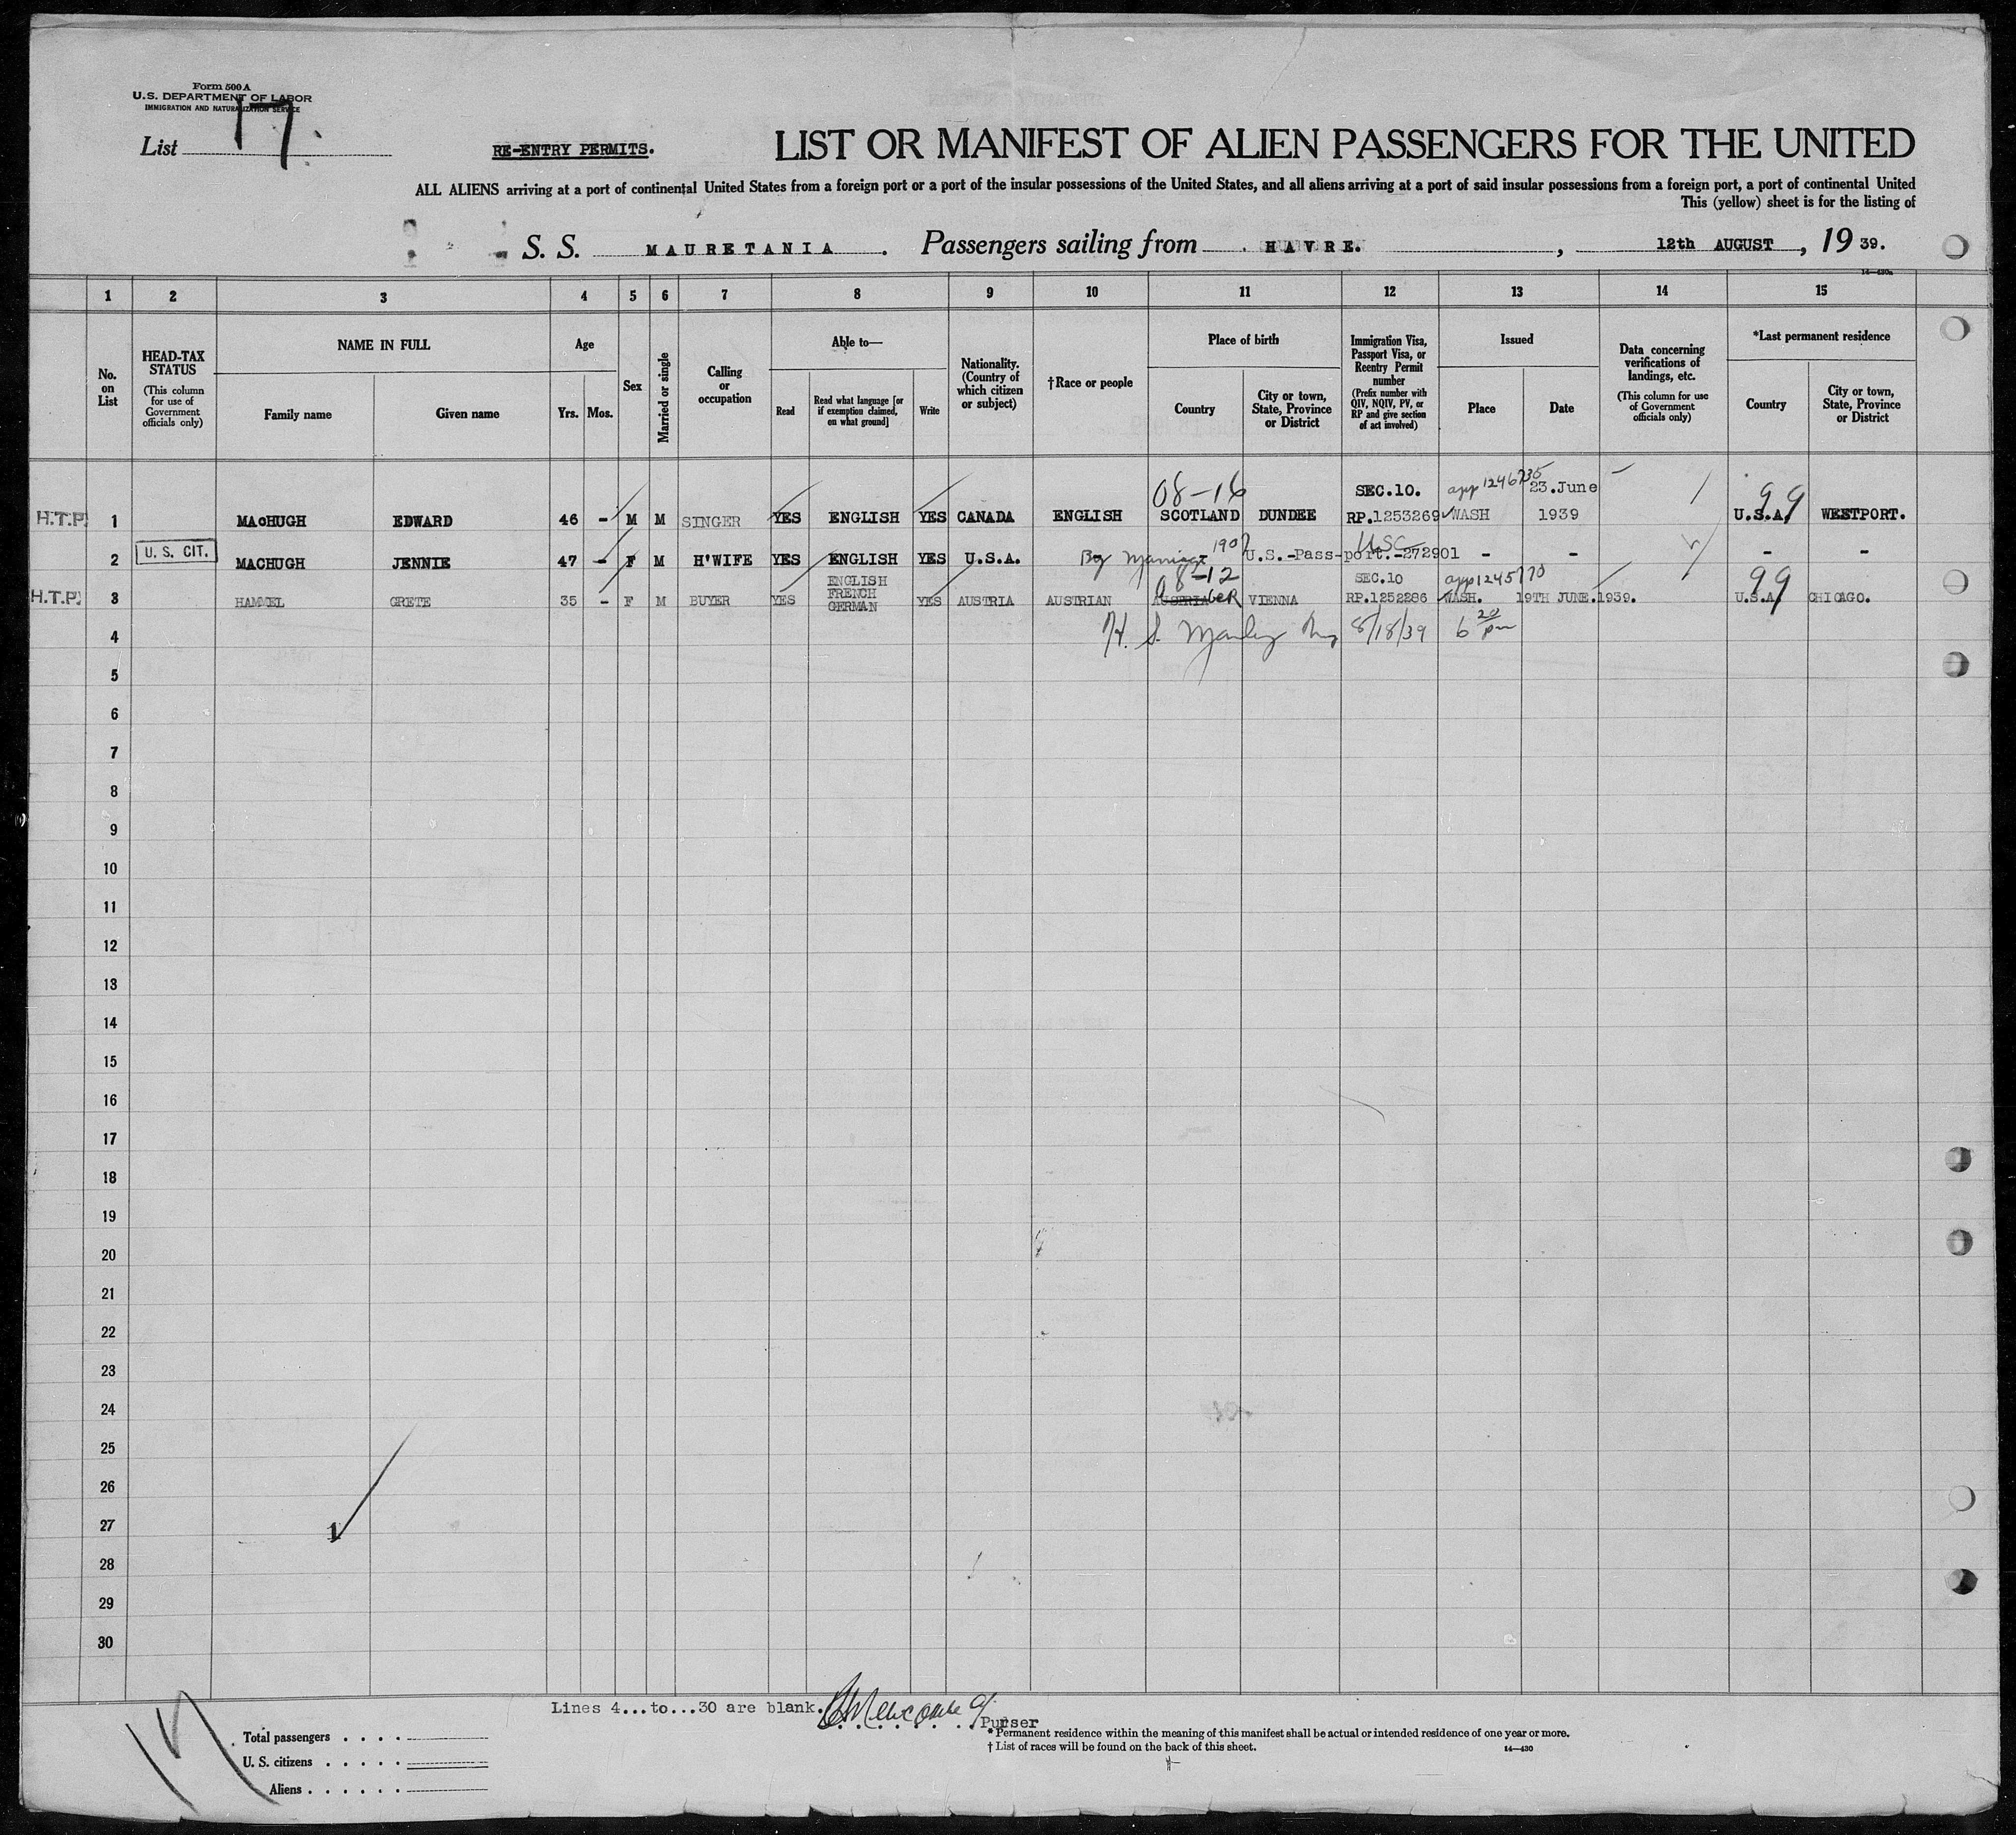 Form 500 A
U.S. DEPARTMENT OF LABOR
IMMIGRATION AND NATURALIZATION SERVICE
List 17.
RE-ENTRY PERMITS.
LIST OR MANIFEST OF ALIEN PASSENGERS FOR THE UNITED
ALL ALIENS arriving at a port of continental United States from a foreign port or a port of the insular possessions of the United States, and all aliens arriving at a port of said insular possessions from a foreign port, a port of continental United
This (yellow) sheet is for the listing of
S. S. MAURETANIA. Passengers sailing from HAVRE., 12th AUGUST, 19 39.
14—430a
1 2 3 4 5 6 7 8 9 10 11 12 13 14 15
No. on List
HEAD-TAX STATUS (This column for use of Government officials only)
NAME IN FULL
Family name Given name
Age
Yrs. Mos.
Sex
Married or single
Calling or occupation
Able to—
Read Read what language [or if exemption claimed, on what ground] Write
Nationality. (Country of which citizen or subject)
†Race or people
Place of birth
Country City or town, State, Province or District
Immigration Visa, Passport Visa, or Reentry Permit number (Prefix number with QIV, NQIV, PV, or RP and give section of act involved)
Issued
Place Date
Data concerning verifications of landings, etc. (This column for use of Government officials only)
*Last permanent residence
Country City or town, State, Province or District
08-16 SEC.10. app 1246735 23.June 99
H.T.P. 1 MACHUGH EDWARD 46 - M M SINGER YES ENGLISH YES CANADA ENGLISH SCOTLAND DUNDEE RP.1253269 WASH 1939 U.S.A. WESTPORT.
1907 USC
U. S. CIT. 2 MACHUGH JENNIE 47 - F M H'WIFE YES ENGLISH YES U.S.A. By Marriage U.S.-Pass-port.-272901 - - - -
ENGLISH 08-12 SEC.10 app 1245770 99
H.T.P. 3 HAMMEL GRETE 35 - F M BUYER YES FRENCH GERMAN YES AUSTRIA AUSTRIAN AUSTRIA GER VIENNA RP.1252286 WASH. 19TH JUNE.1939. U.S.A. CHICAGO.
4 H. S. Manley 8/18/39 6 20 pm
5
6
7
8
9
10
11
12
13
14
15
16
17
18
19
20
21
22
23
24
25
26
27
28
29
30
Lines 4...to...30 are blank.
Purser
17
Total passengers
U. S. citizens
Aliens
*Permanent residence within the meaning of this manifest shall be actual or intended residence of one year or more.
† List of races will be found on the back of this sheet.
14—430